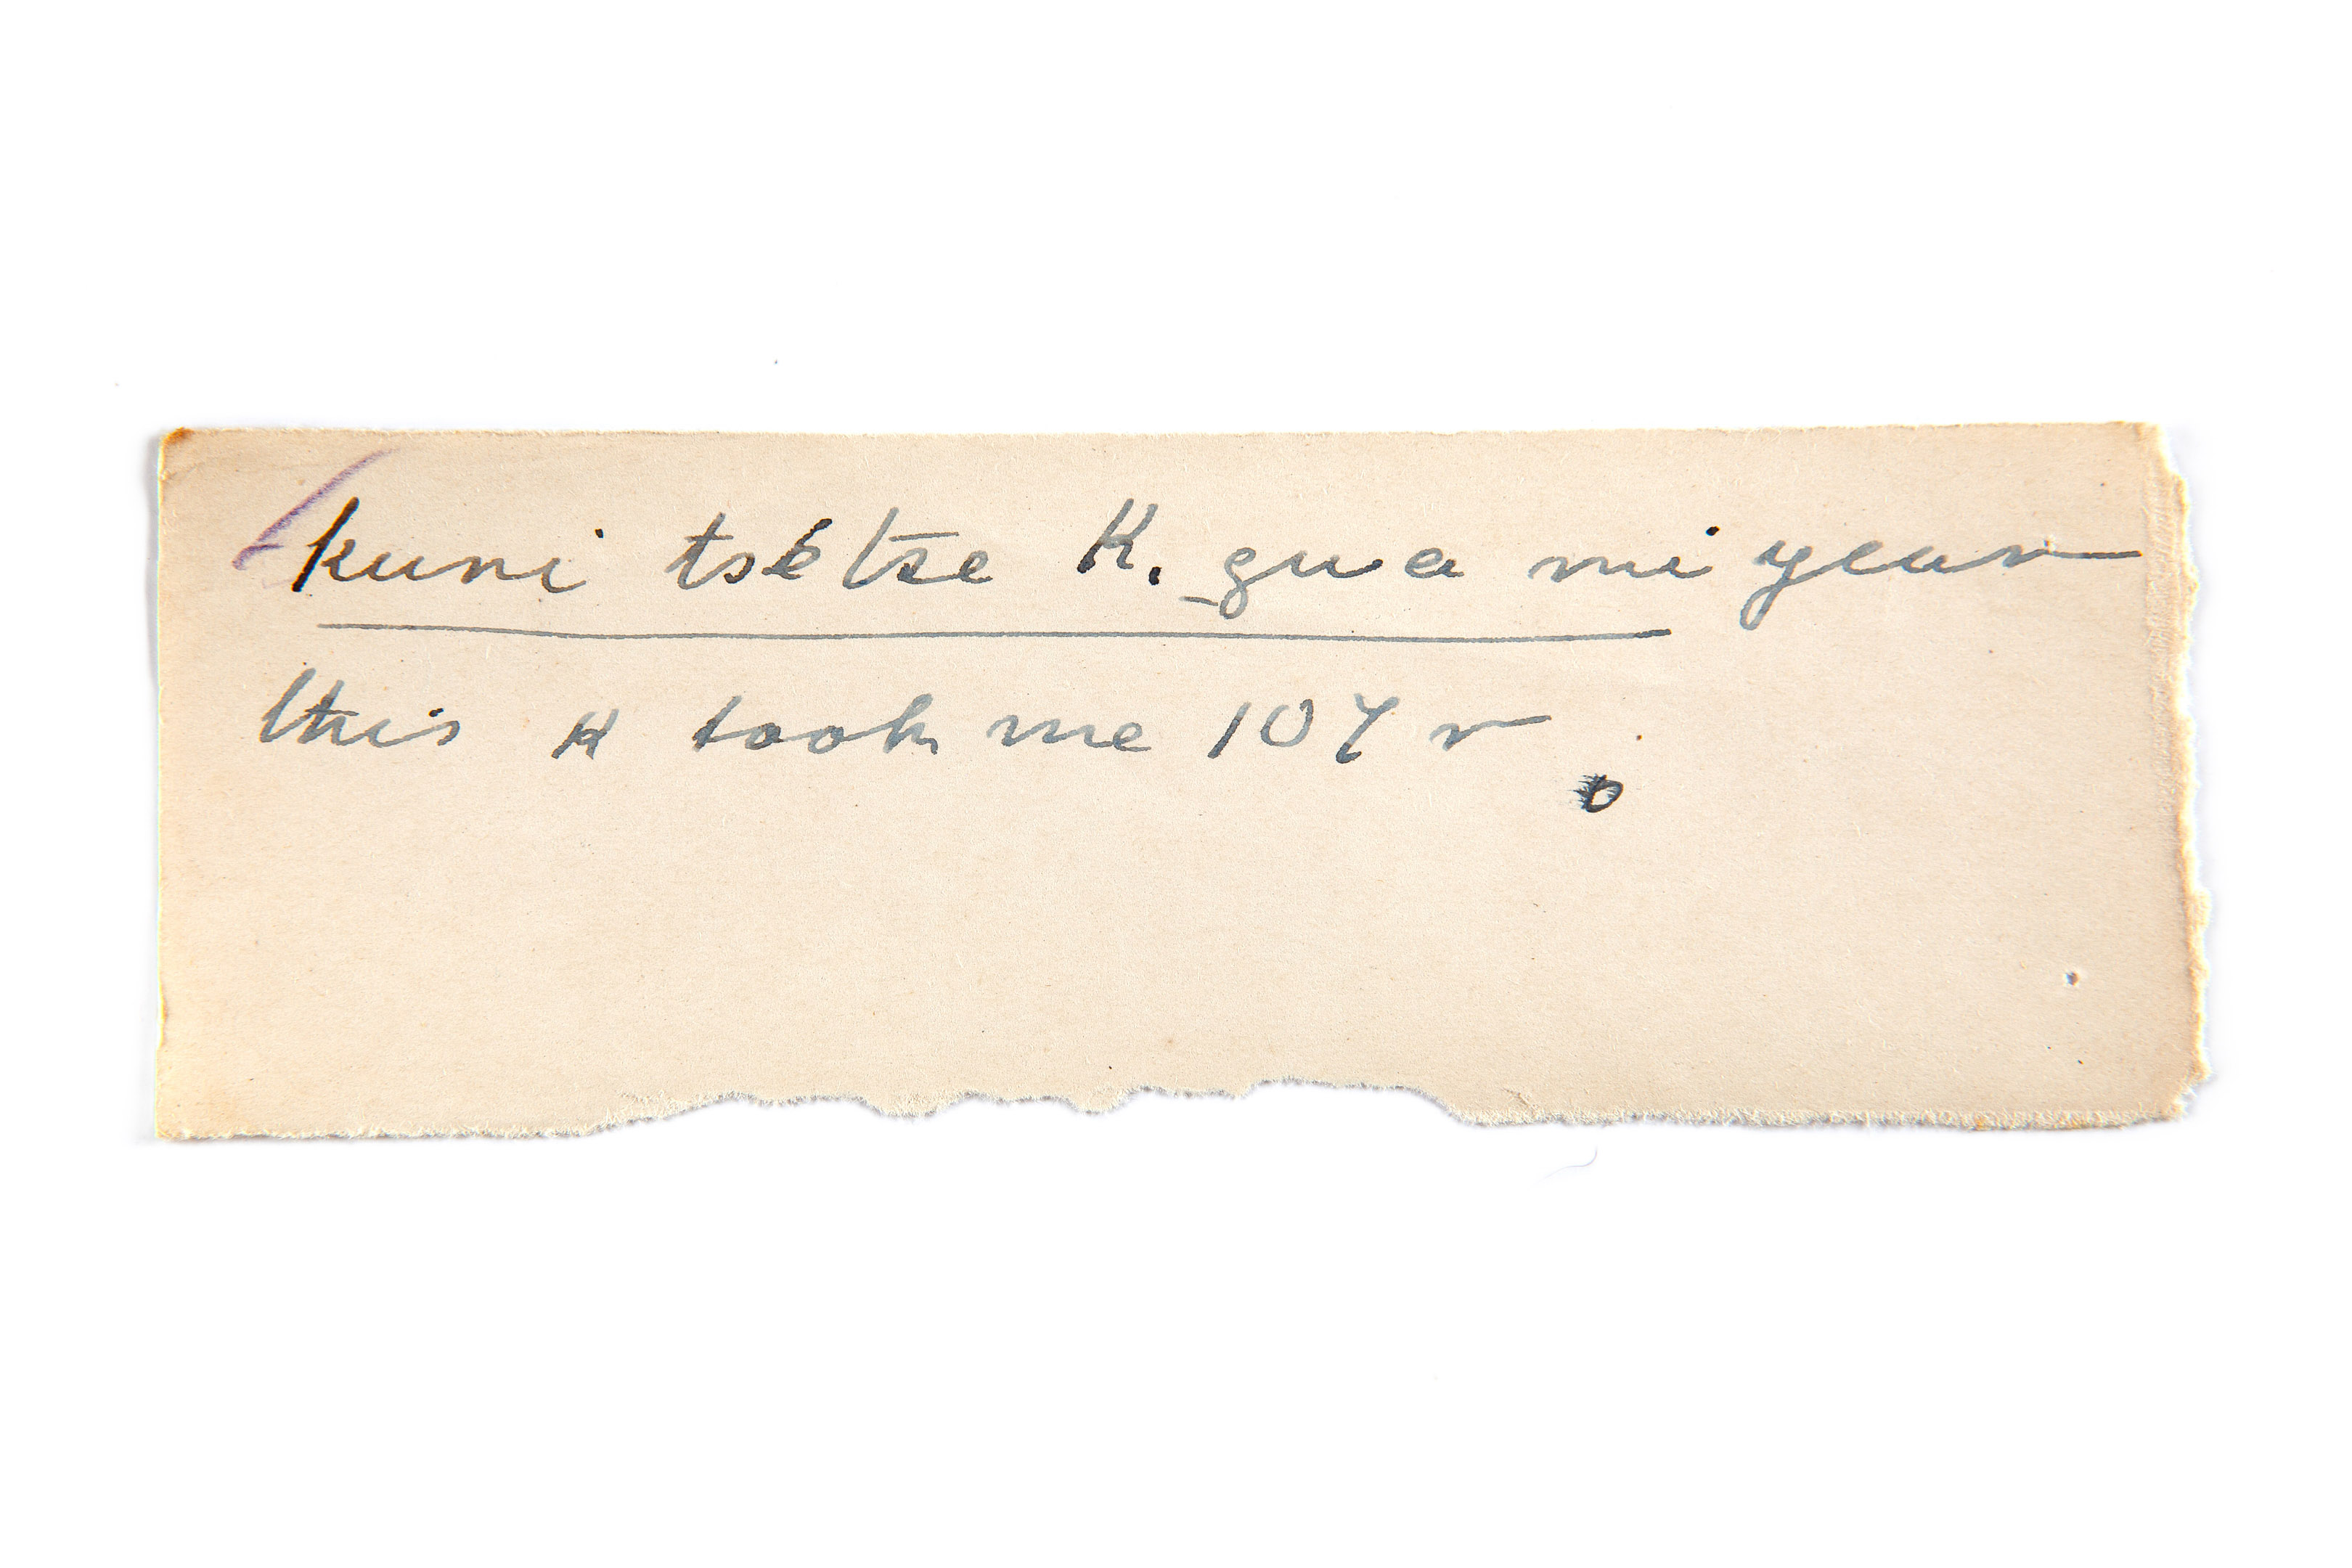 kuni tsétse K. gua mi year
this K took me 10 Yr